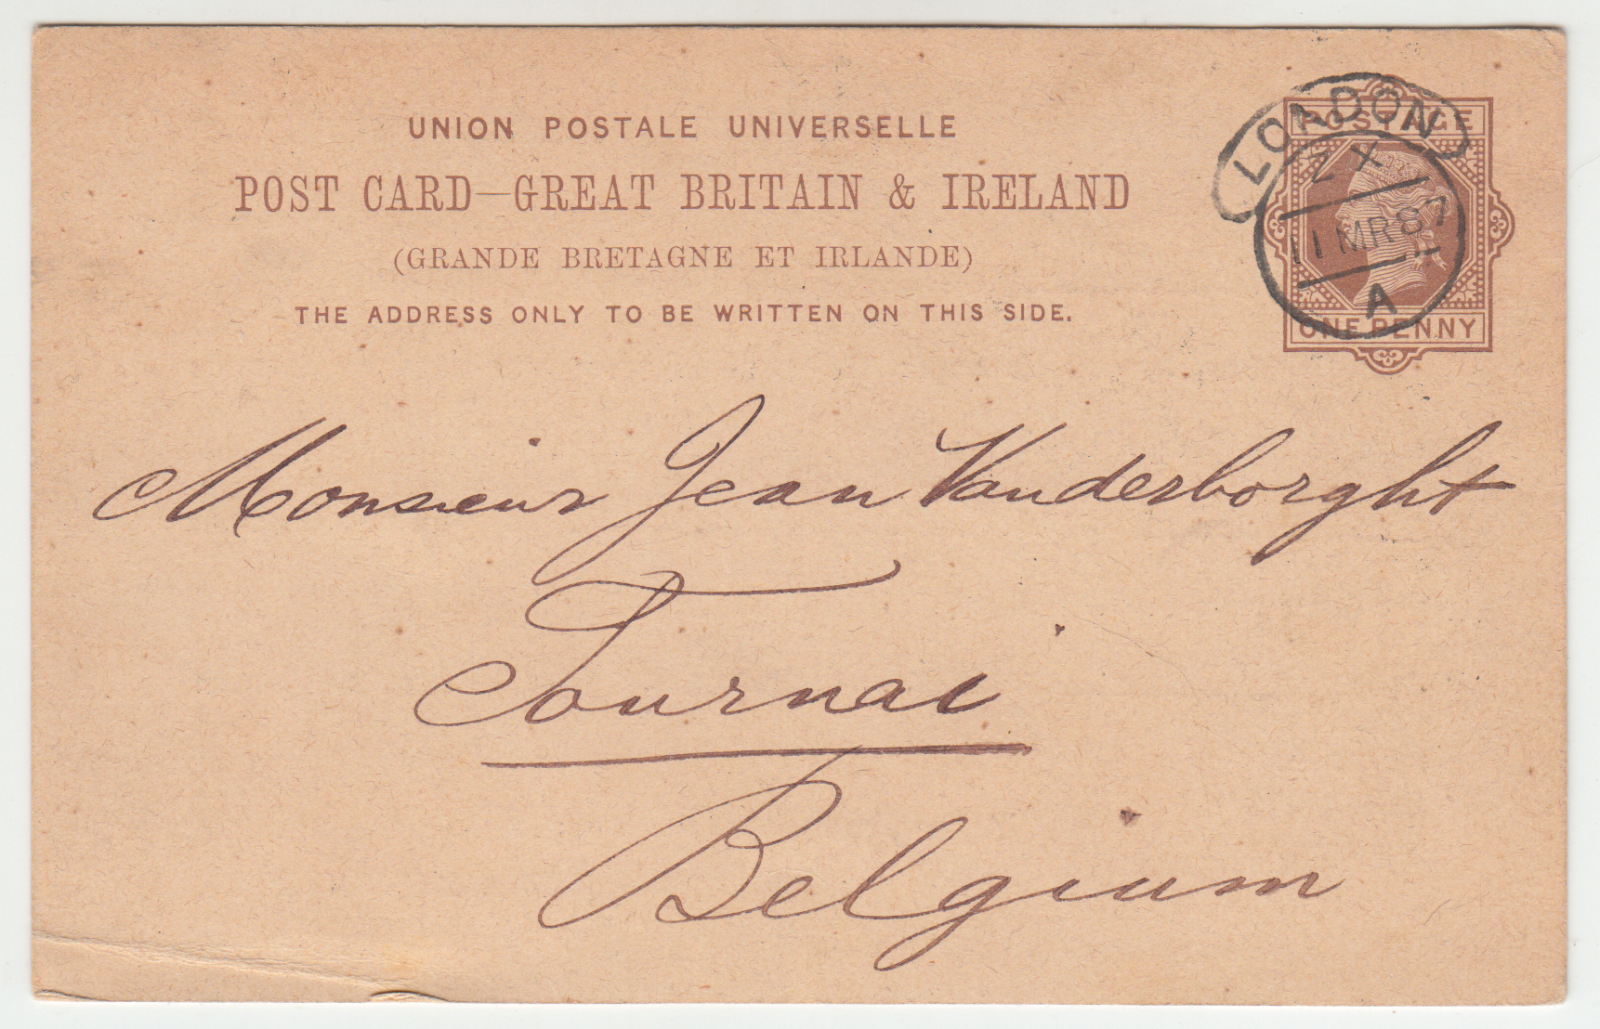 UNION POSTALE UNIVERSELLE
POST CARD—GREAT BRITAIN & IRELAND
(GRANDE BRETAGNE ET IRLANDE)
THE ADDRESS ONLY TO BE WRITTEN ON THIS SIDE.
POSTAGE
ONE PENNY
LONDON
ZX
11 MR 87
A
Monsieur Jean Vanderborght
Tournai
Belgium